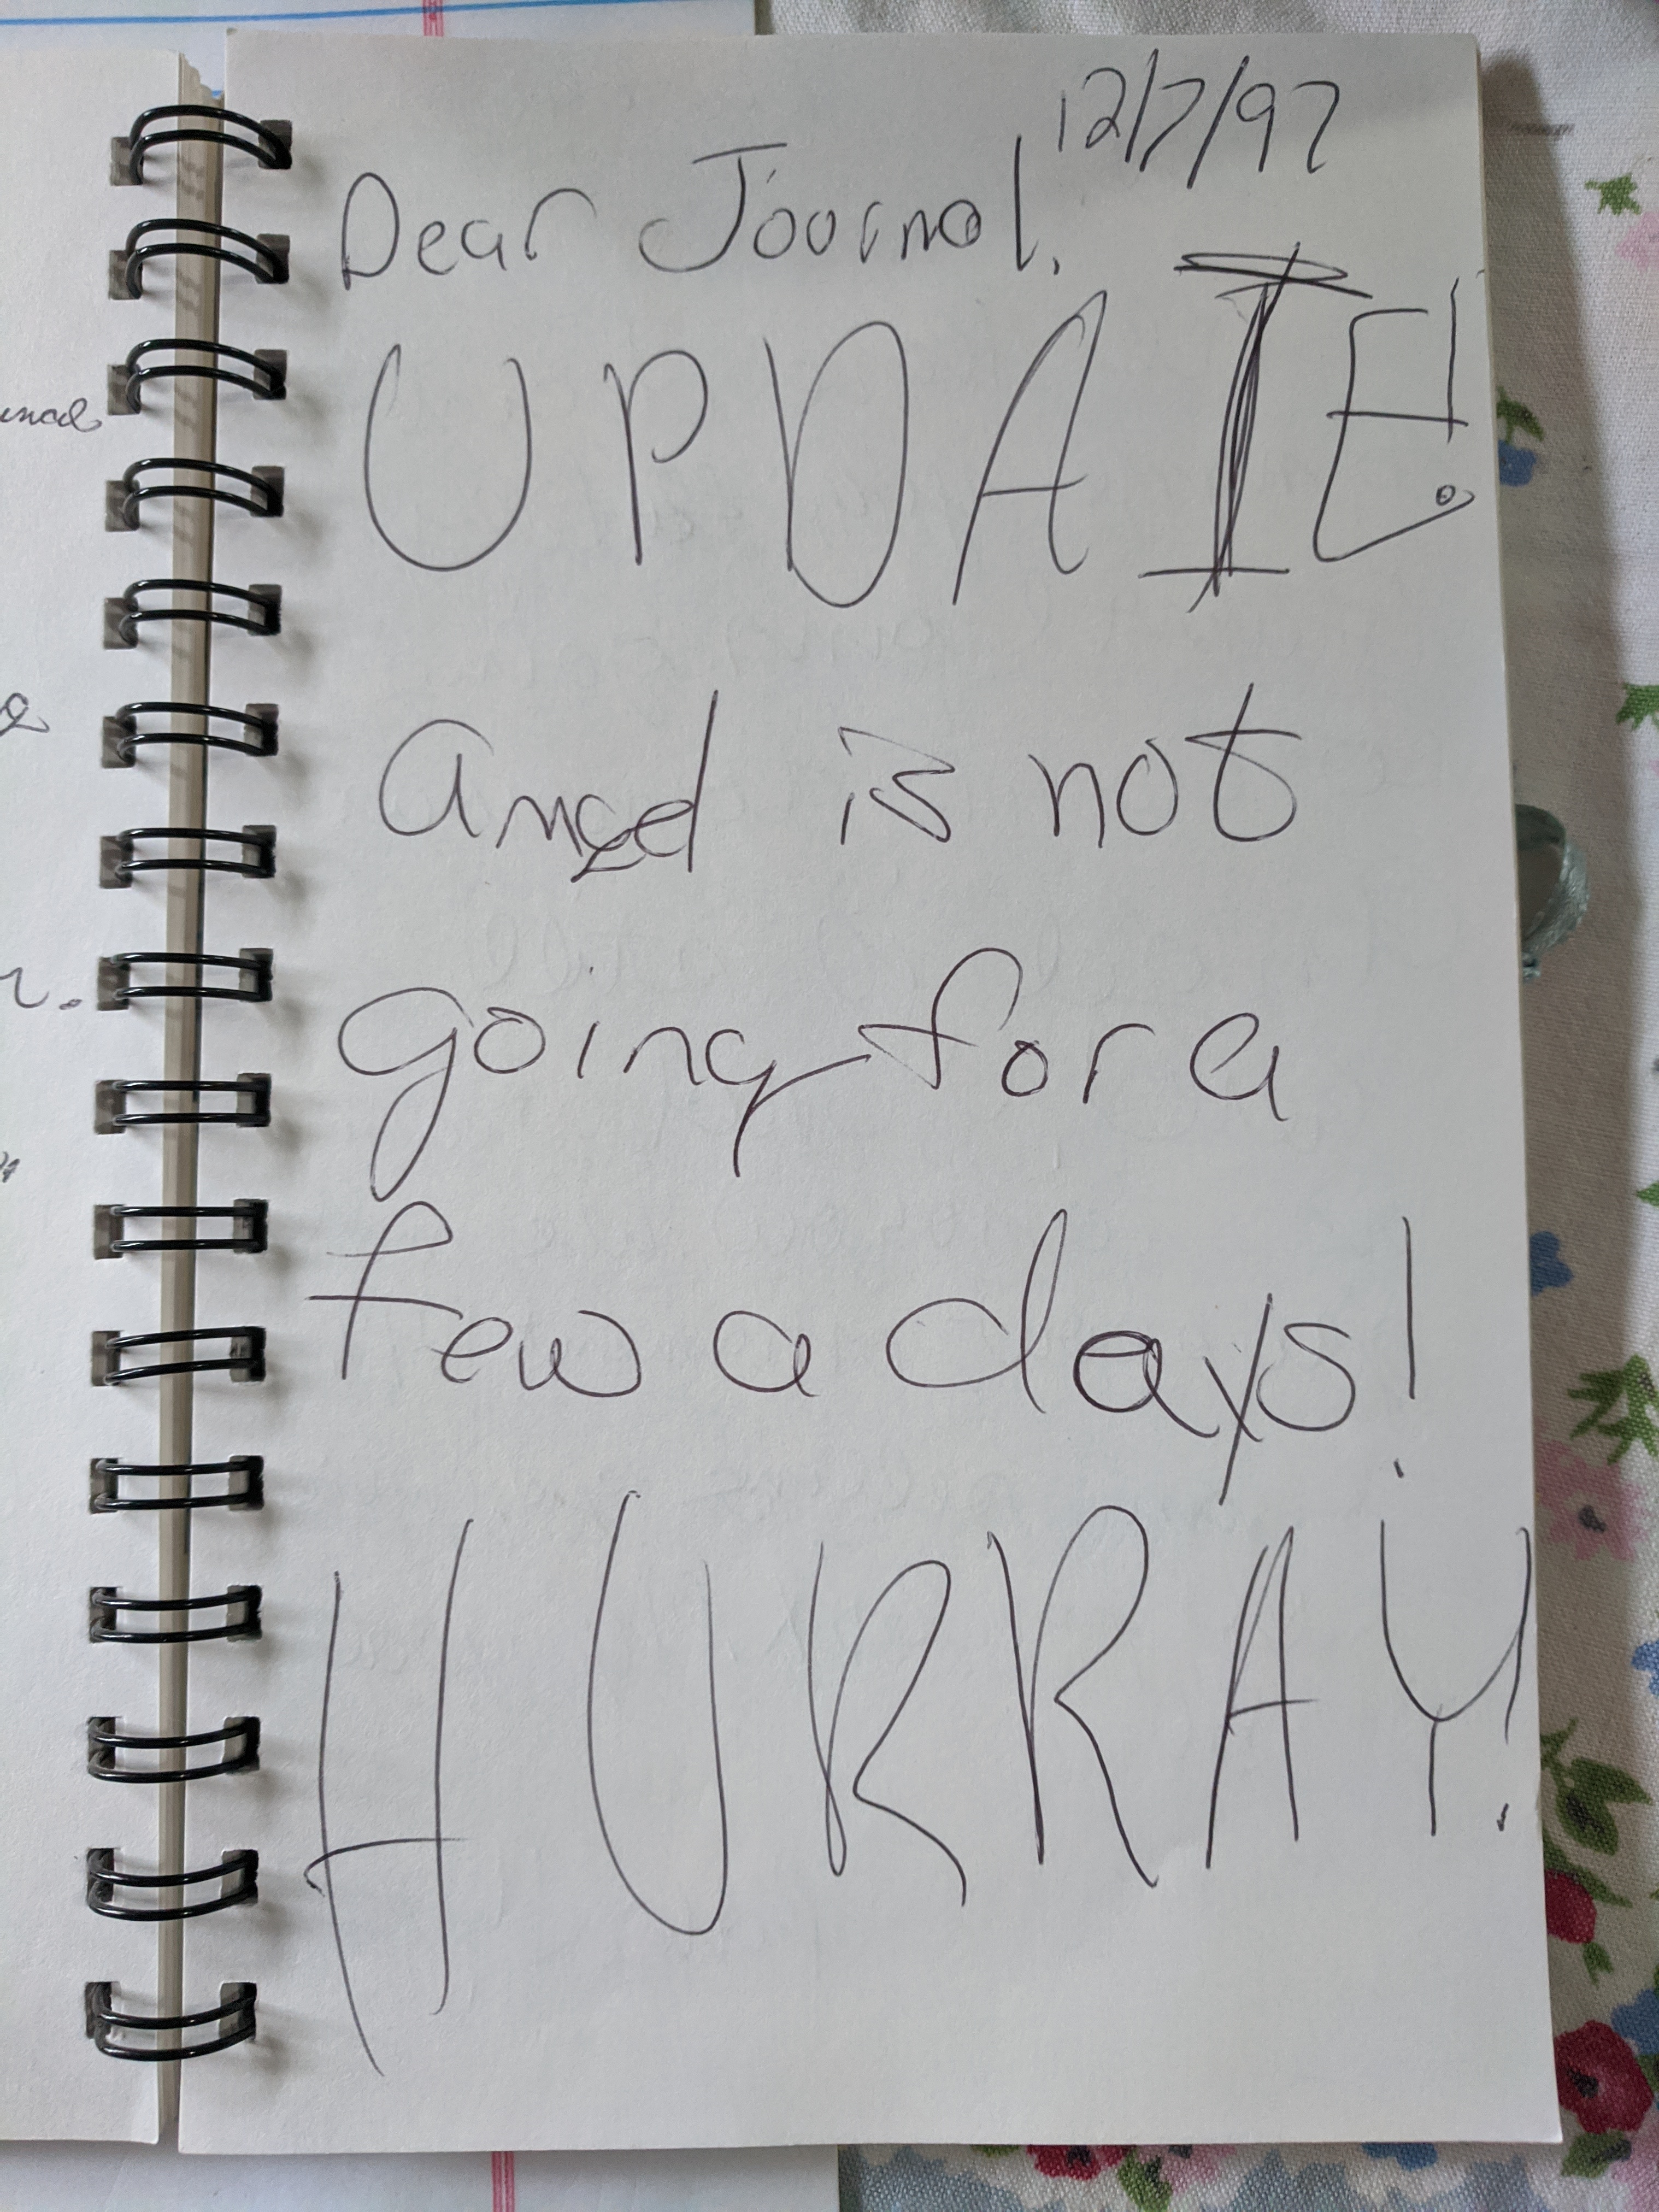 12/7/97
Dear Journal.
UPDATE!
Angel is not
going for a
few a days!
HURRAY!